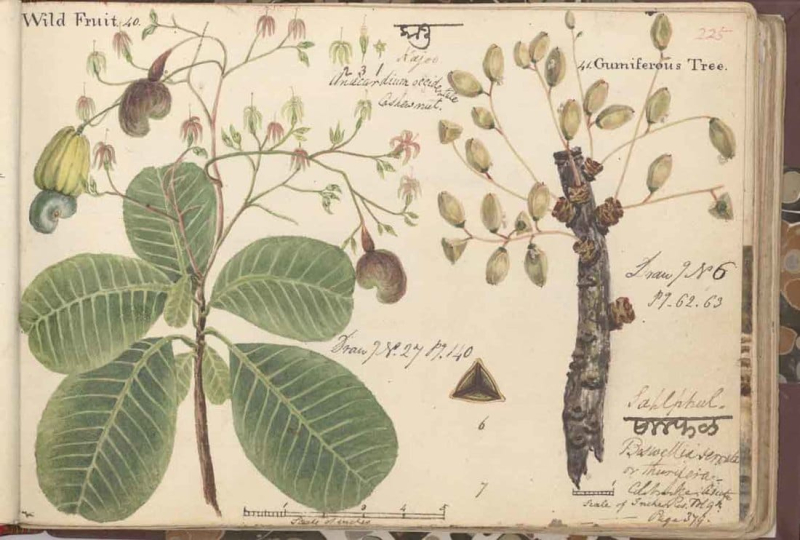 Wild Fruit. 40.
Kajoo
Anacardium occidentale
Cashew nut.
225
41. Gumiferous Tree.
Draw g No 6
Pg. 62. 63
Draw g No. 27 Pg. 140
6
7
Sahlphul.
Boswellia serrata
or thurifera.
Scale of Inches
Page 379.
Scale of Inches